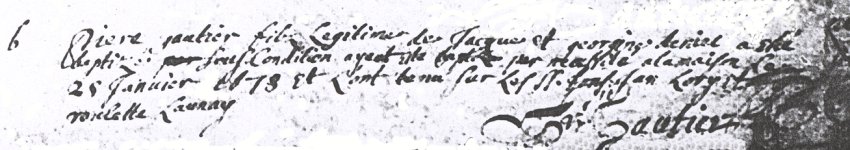 6 Piere gautier fils Legitime de Jacque et georgine deniel a esté
baptizé sous Condition ayant esté baptizé par necessité a la maison Le
25 Janvier 1678 et L'ont tenu sur Les
roulette Launay
Gautier